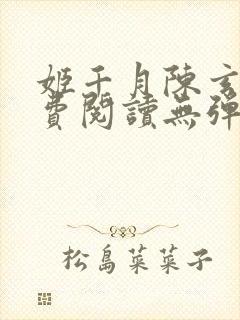 姬千月陳玄
費閱讀無彈
松島菜菜子